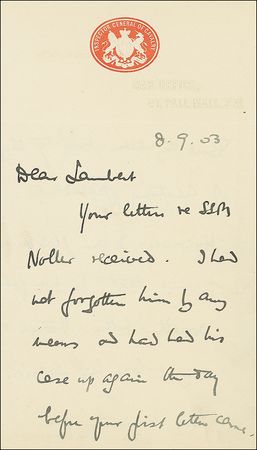 INSPECTOR GENERAL OF CAVALRY
WAR OFFICE,
PALL MALL, S.W.
8.9.03
Dear Lambert
Your letters re SSM
Noller received. I had
not forgotten him by any
means and had had his
case up again the day
before your first letter came.